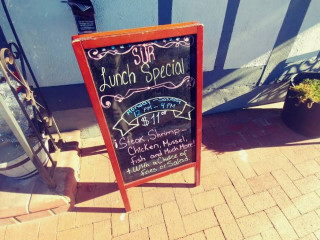 SUR
Lunch Special
Monday - Sunday
12 PM - 4 PM
$11.00
Steak, Shrimp
Chicken, Mussel,
fish and Much More
with a Choice of
fries or Salad.